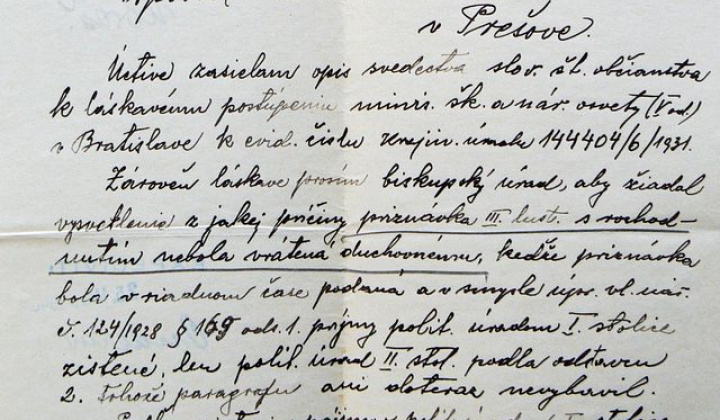 v Prešove.
Úctive zasielam opis svedectva slov. št. občianstva
k láskavému postúpeniu minis. šk. a nár. osvety (V od.)
v Bratislave k evid. číslu krajin. úradu 144404/6/1931.
Zároveň láskave prosím biskupský úrad, aby žiadal
vysvetlenie z jakej príčiny priznávka III. lust. s rozhod-
nutím nebola vrátená duchovnému, kedže priznávka
bola v riadnom čase podaná a v smysle úpr. vl. nar.
č. 124/1928 § 169 ods. 1. príjmy polit. úradom I. stolice
zistené, len polit. úrad II. stol. podla odstaven
2. tohože paragrafu ani doteraz nevybavil.